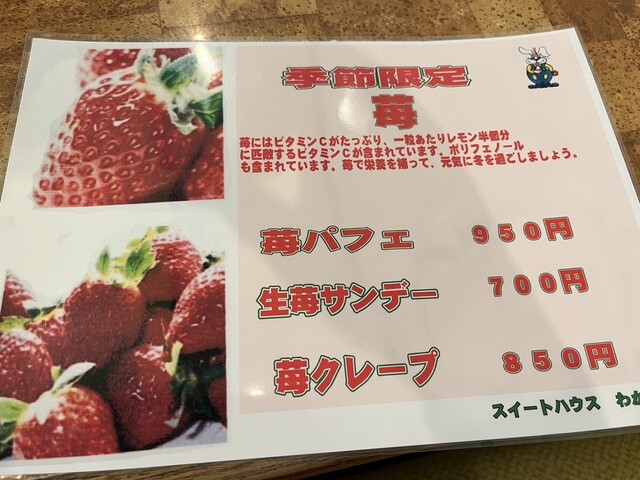 季節限定
苺
苺にはビタミンCがたっぷり、一粒あたりレモン半個分
に匹敵するビタミンCが含まれています。ポリフェノール
も含まれています。苺で栄養を補って、元気に冬を過ごしましょう。
苺パフェ 950円
生苺サンデー 700円
苺クレープ 850円
スイートハウス わか